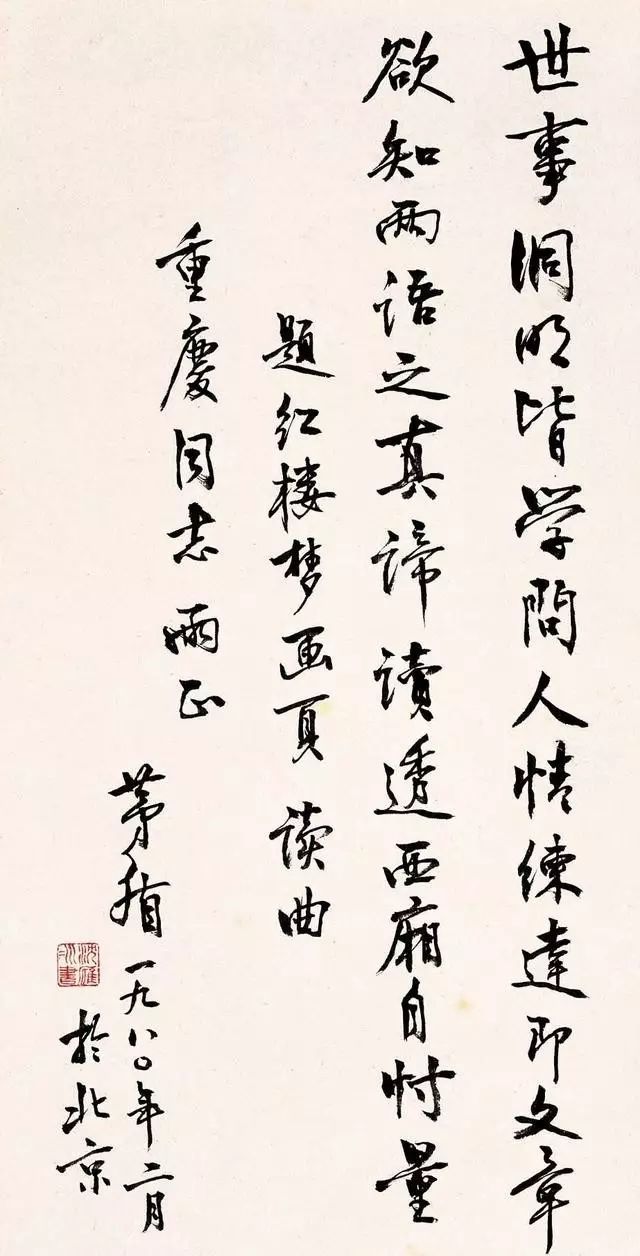 世事洞明皆学問人情練達即文章
欲知两语之真谛讀透西廂自忖量
題红楼梦画頁 读曲
重慶同志 两正
茅盾 一九八〇年二月
於北京
沈雁冰書